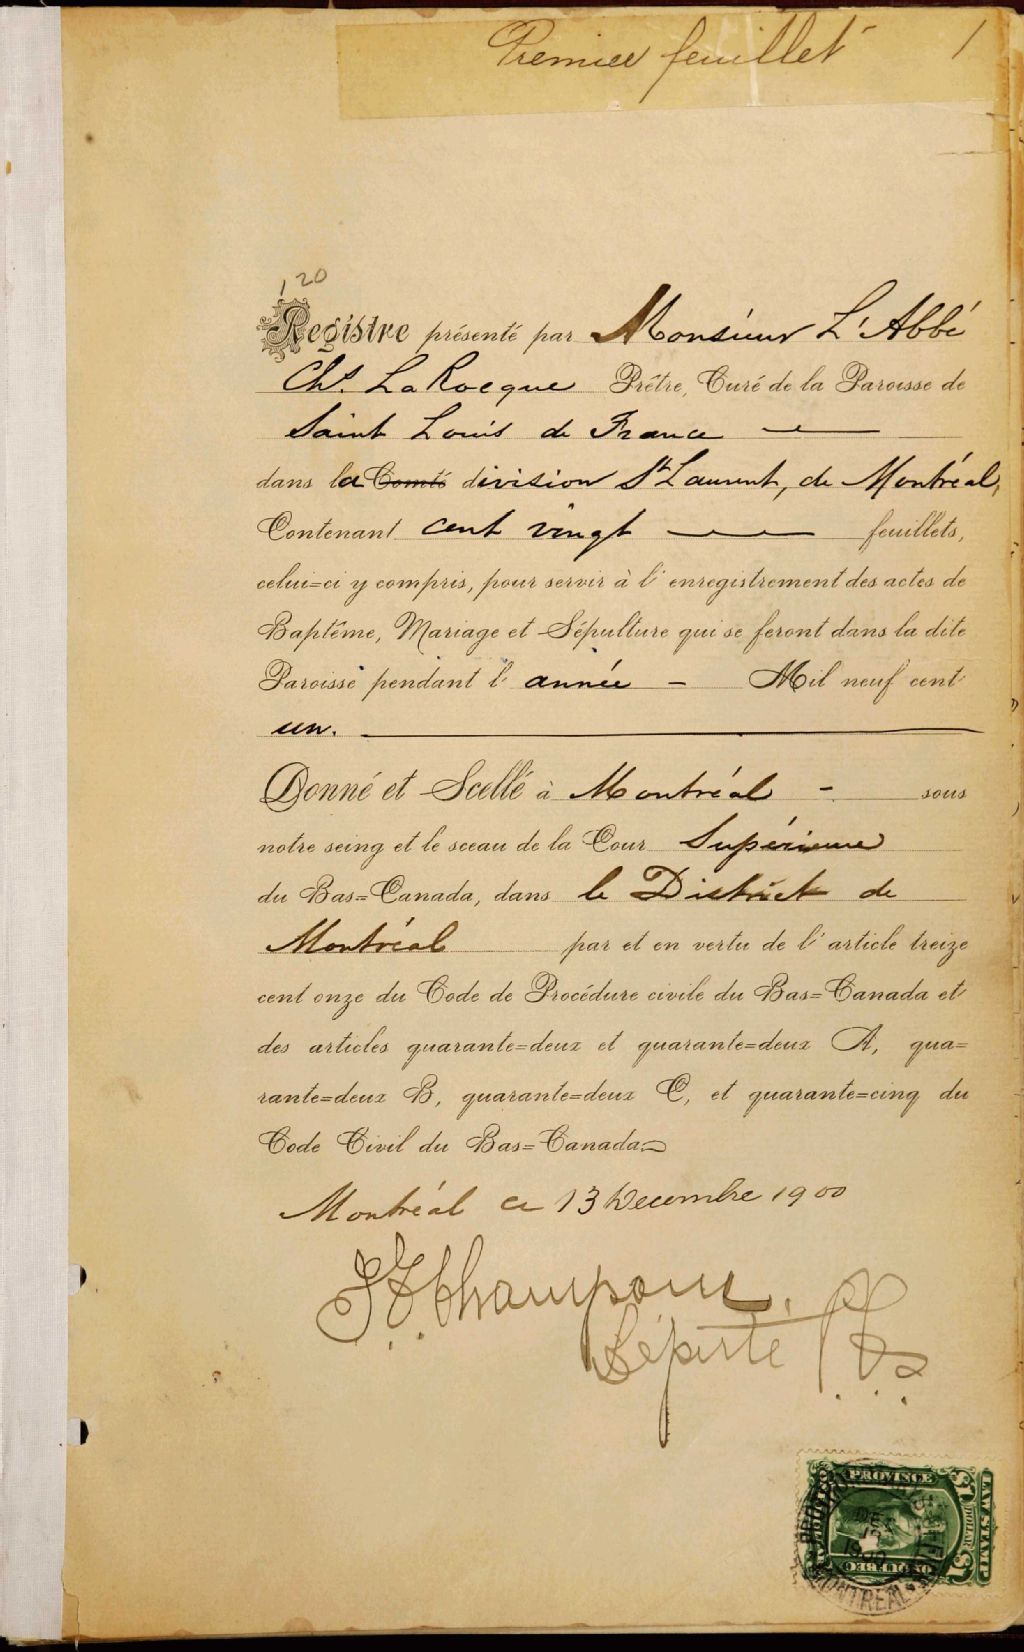 Premier feuillet 1
120
Registre présenté par Monsieur L'Abbé
Chs. LaRocque Prêtre, Curé de la Paroisse de
Saint Louis de France
dans la Comté division St Laurent, de Montréal,
Contenant cent vingt feuillets,
celui=ci y compris, pour servir à l'enregistrement des actes de
Baptême, Mariage et Sépulture qui se feront dans la dite
Paroisse pendant l'année - Mil neuf cent
un.
Donné et Scellé à Montréal - sous
notre seing et le sceau de la Cour Supérieure
du Bas=Canada, dans le District de
Montréal par et en vertu de l'article treize
cent onze du Code de Procédure civile du Bas=Canada et
des articles quarante=deux et quarante=deux A, qua=
rante=deux B, quarante=deux C, et quarante=cinq du
Code Civil du Bas=Canada.
Montréal ce 13 Decembre 1900
Député
PROVINCE
OF QUEBEC
LAW STAMP
DOLLAR
PROTHONOTARY'S OFFICE
DEC
1900
MONTREAL